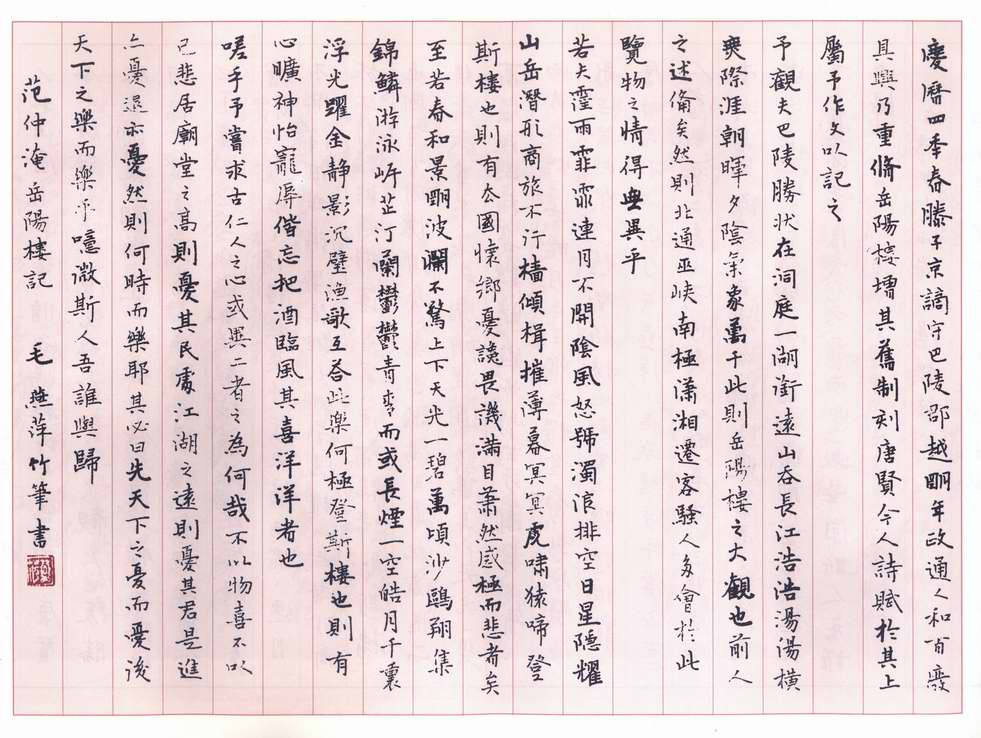 慶曆四年春滕子京謫守巴陵郡越明年政通人和百廢
具興乃重脩岳陽樓增其舊制刻唐賢今人詩賦於其上
屬予作文以記之
予觀夫巴陵勝狀在洞庭一湖銜遠山吞長江浩浩湯湯橫
無際涯朝暉夕陰氣象萬千此則岳陽樓之大觀也前人
之述備矣然則北通巫峽南極瀟湘遷客騷人多會於此
覽物之情得無異乎
若夫霪雨霏霏連月不開陰風怒號濁浪排空日星隱耀
山岳潛形商旅不行檣傾楫摧薄暮冥冥虎嘯猿啼登
斯樓也則有去國懷鄉憂讒畏譏滿目蕭然感極而悲者矣
至若春和景明波瀾不驚上下天光一碧萬頃沙鷗翔集
錦鱗游泳岸芷汀蘭鬱鬱青青而或長煙一空皓月千裏
浮光躍金静影沉璧漁歌互答此樂何極登斯樓也則有
心曠神怡寵辱偕忘把酒臨風其喜洋洋者也
嗟乎予嘗求古仁人之心或異二者之為何哉不以物喜不以
己悲居廟堂之高則憂其民處江湖之遠則憂其君是進
亦憂退亦憂然則何時而樂耶其必曰先天下之憂而憂後
天下之樂而樂乎噫微斯人吾誰與歸
范仲淹岳陽樓記 毛燕萍竹筆書